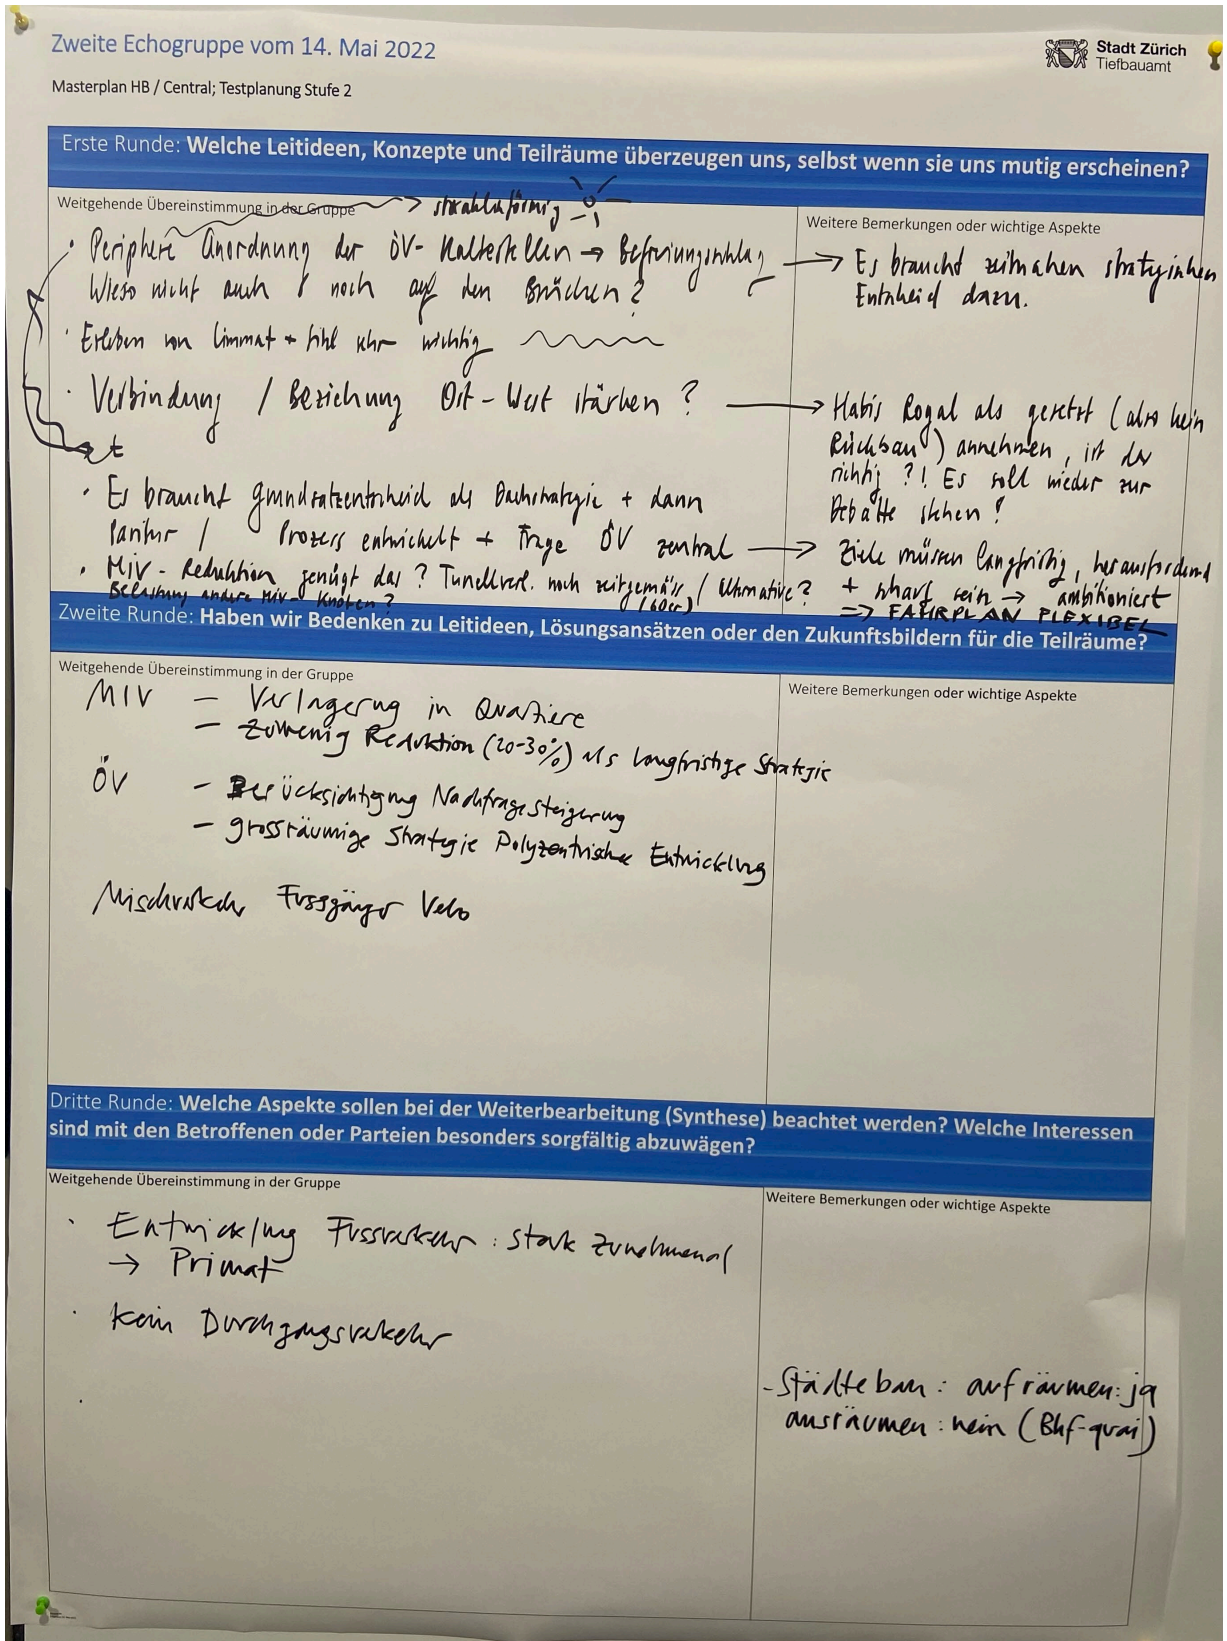 Zweite Echogruppe vom 14. Mai 2022
Stadt Zürich
Tiefbauamt
Masterplan HB / Central; Testplanung Stufe 2
Erste Runde: Welche Leitideen, Konzepte und Teilräume überzeugen uns, selbst wenn sie uns mutig erscheinen?
Weitgehende Übereinstimmung in der Gruppe
→ strahlenförmig
• Periphere Anordnung der ÖV-Haltestellen → Befreiungsschlag
Wieso nicht auch noch auf den Brücken?
• Erleben von Limmat + Sihl sehr wichtig
• Verbindung / Beziehung Ost-West stärken?
• Es braucht Grundsatzentscheid als Dachstrategie + dann
/ Prozess entwickelt + Frage ÖV zentral
• MIV-Reduktion genügt das? Tunellverl. noch zeitgemäss / Alternative?
(60er)
Belastung andere MIV-Knoten?
Weitere Bemerkungen oder wichtige Aspekte
→ Es braucht zeitnahen strategischen
Entscheid dazu.
→ Habis Royal als gesetzt (also kein
Rückbau) annehmen, ist das
richtig?! Es soll wieder zur
Debatte stehen!
→ Ziele müssen langfristig, herausfordernd
+ scharf sein → ambitioniert
=> FAHRPLAN FLEXIBEL
Zweite Runde: Haben wir Bedenken zu Leitideen, Lösungsansätzen oder den Zukunftsbildern für die Teilräume?
Weitgehende Übereinstimmung in der Gruppe
MIV – Verlagerug in Quartiere
– zuwenig Reduktion (20-30%) als langfristige Strategie
ÖV – Berücksichtigung Nachfragesteigerung
– grossräumige Strategie Polyzentrische Entwicklung
Mischverkehr Fussgänger Velo
Weitere Bemerkungen oder wichtige Aspekte
Dritte Runde: Welche Aspekte sollen bei der Weiterbearbeitung (Synthese) beachtet werden? Welche Interessen
sind mit den Betroffenen oder Parteien besonders sorgfältig abzuwägen?
Weitgehende Übereinstimmung in der Gruppe
• Entwicklung Fussverkehr: stark zunehmend
→ Primat
• Kein Durchgangsverkehr
•
Weitere Bemerkungen oder wichtige Aspekte
- Städtebau: aufräumen: ja
ausräumen: nein (Bhf-quai)